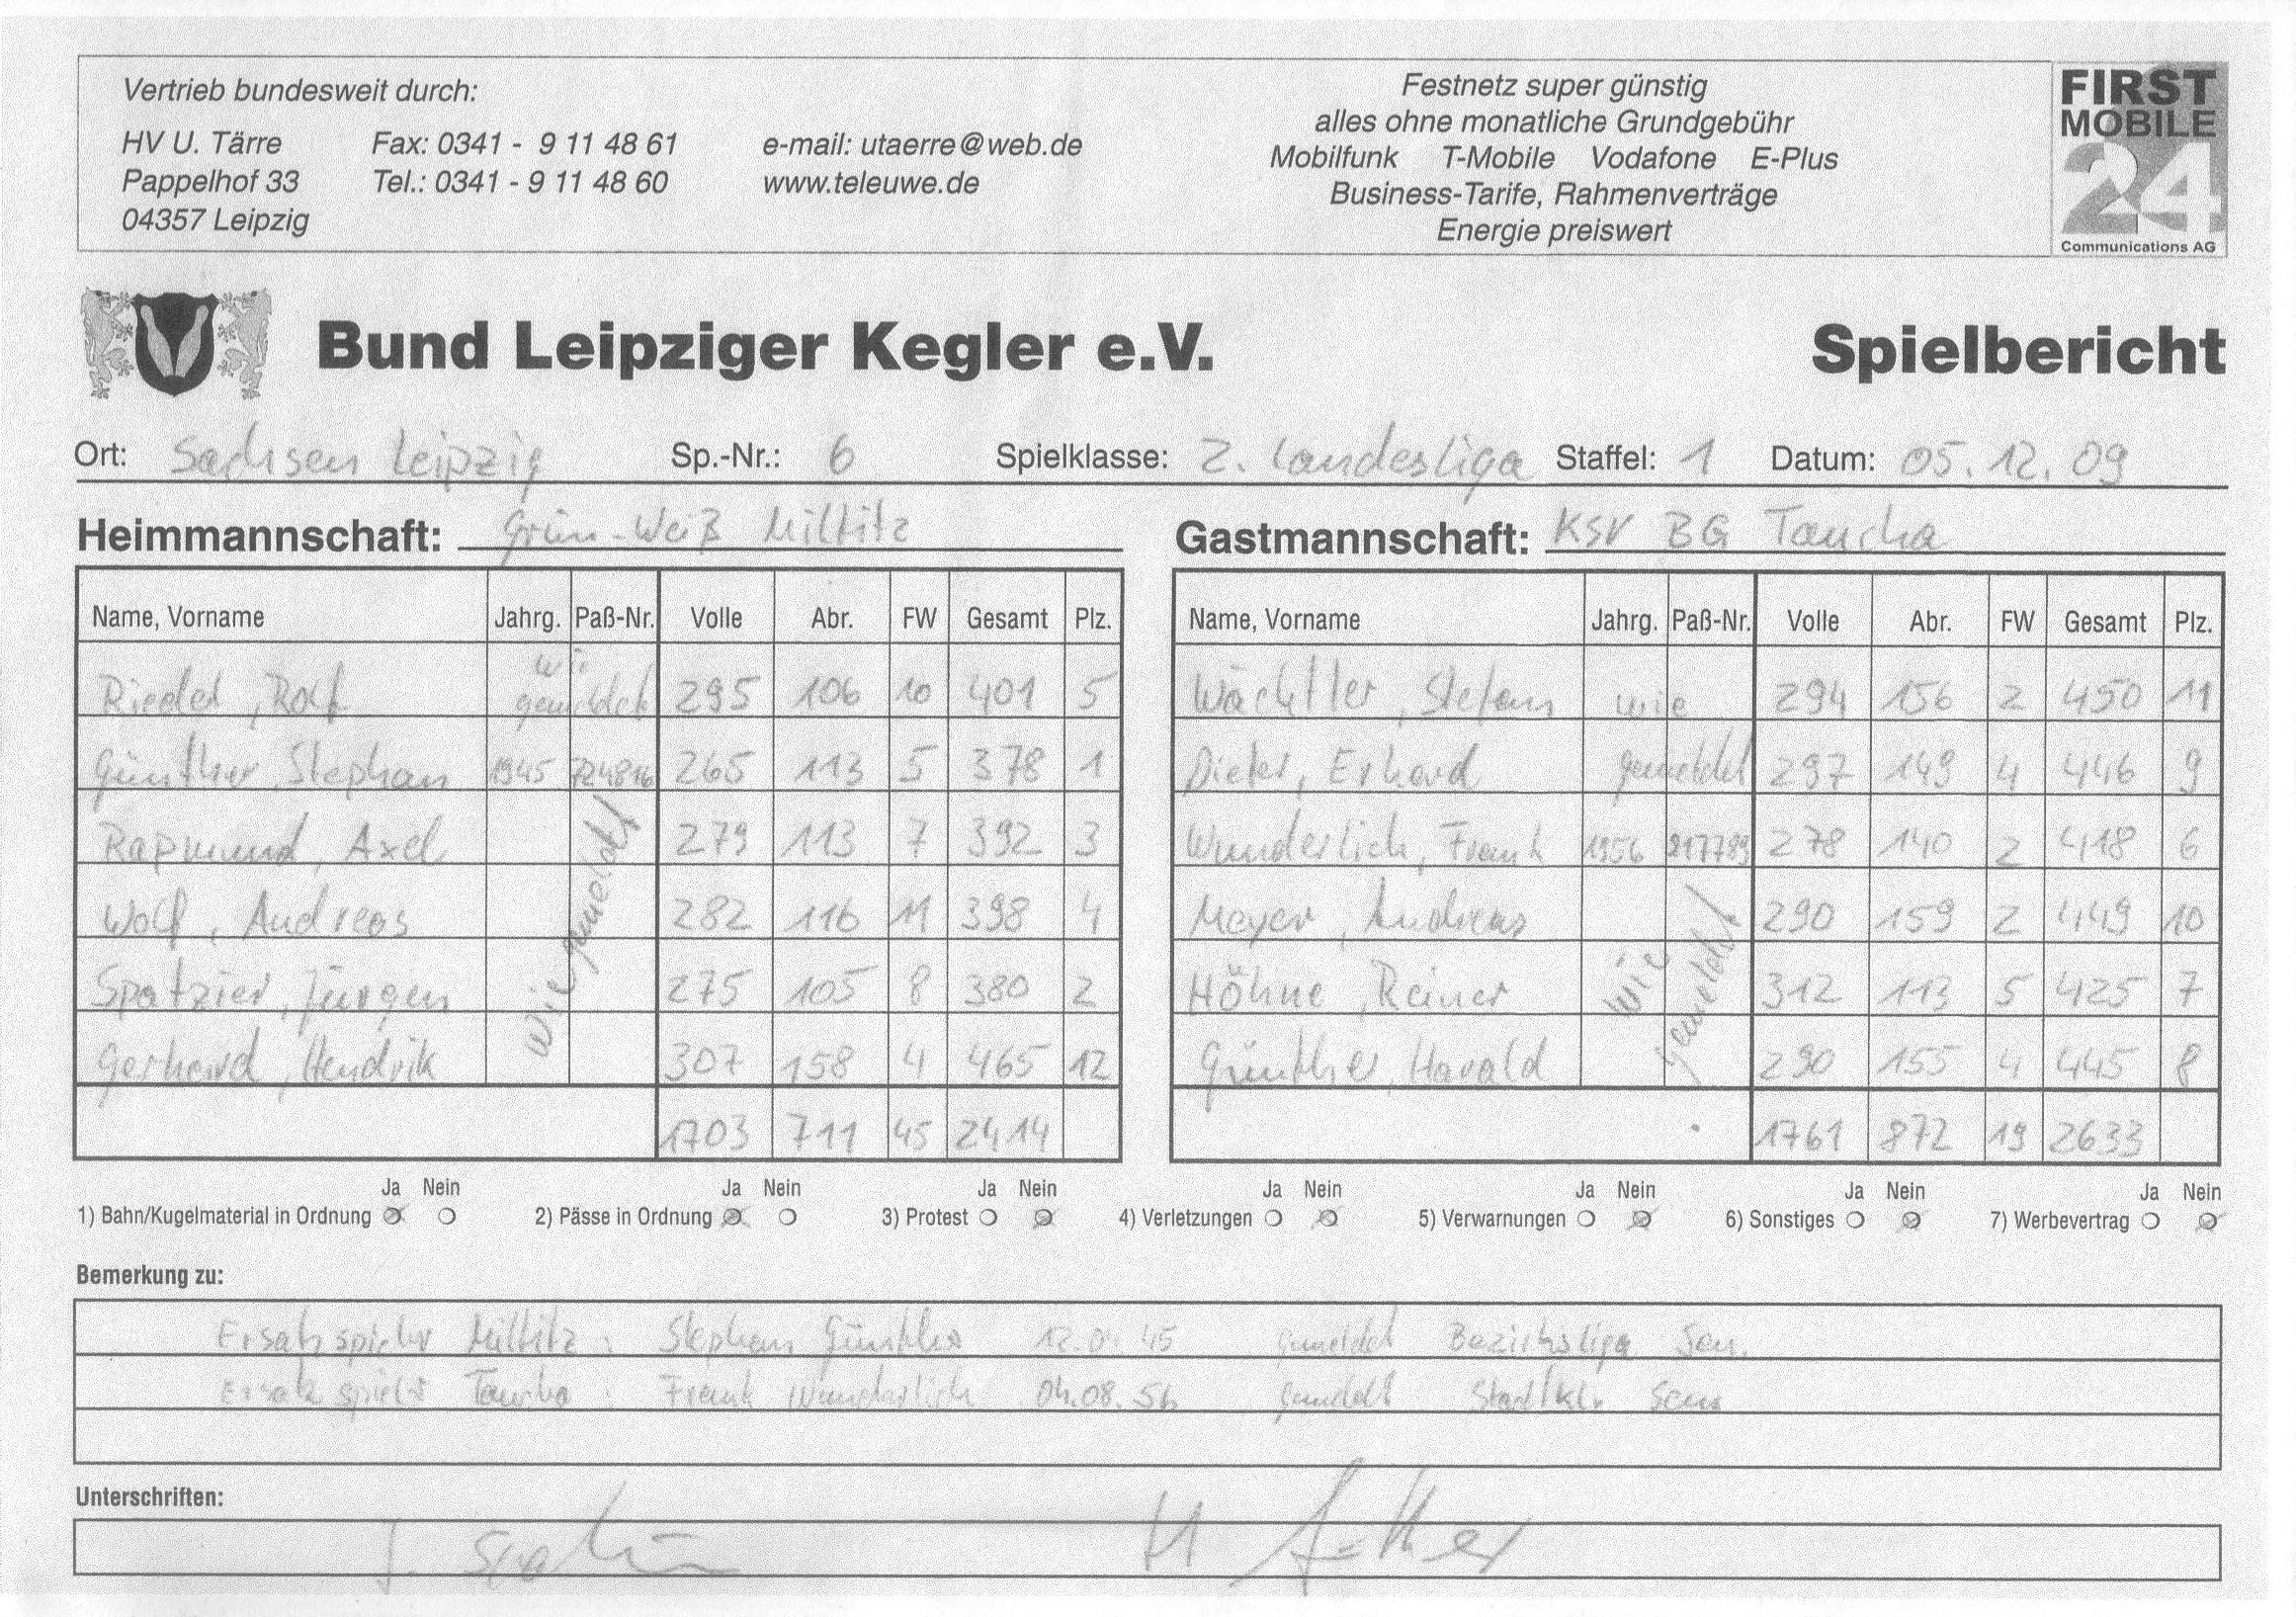 Vertrieb bundesweit durch:
HV U. Tärre Fax: 0341 - 9 11 48 61 e-mail: utaerre@web.de
Pappelhof 33 Tel.: 0341 - 9 11 48 60 www.teleuwe.de
04357 Leipzig
Festnetz super günstig
alles ohne monatliche Grundgebühr
Mobilfunk T-Mobile Vodafone E-Plus
Business-Tarife, Rahmenverträge
Energie preiswert
FIRST
MOBILE
24
Communications AG
Bund Leipziger Kegler e.V. Spielbericht
Ort: Sachsen Leipzig Sp.-Nr.: 6 Spielklasse: 2. Landesliga Staffel: 1 Datum: 05.12.09
Heimmannschaft: Grün-Weiß Miltitz
Name, Vorname Jahrg. Paß-Nr. Volle Abr. FW Gesamt Plz.
Riedel, Rolf wie gemeldet 295 106 10 401 5
Günther, Stephan 1945 724816 265 113 5 378 1
Rapmund, Axel 279 113 7 392 3
Wolf, Andreas wie gemeldet 282 116 11 398 4
Spatzier, Jürgen 275 105 8 380 2
Gerhard, Hendrik 307 158 4 465 12
1703 711 45 2414
Gastmannschaft: KSV BG Taucha
Name, Vorname Jahrg. Paß-Nr. Volle Abr. FW Gesamt Plz.
Wächtler, Stefan wie 294 156 2 450 11
Dieter, Erhard gemeldet 297 149 4 446 9
Wunderlich, Frank 1956 217789 278 140 2 418 6
Meyer, Andreas 290 159 2 449 10
Höhne, Reiner wie gemeldet 312 113 5 425 7
Günther, Harald 290 155 4 445 8
1761 872 19 2633
Ja Nein Ja Nein Ja Nein Ja Nein Ja Nein Ja Nein Ja Nein
1) Bahn/Kugelmaterial in Ordnung 2) Pässe in Ordnung 3) Protest 4) Verletzungen 5) Verwarnungen 6) Sonstiges 7) Werbevertrag
Bemerkung zu:
Ersatzspieler Miltitz: Stephan Günther gemeldet Bezirksliga Sen.
Ersatzspieler Taucha: Frank Wunderlich 04.08.56 gemeldet Stadtkl. Sen
Unterschriften:
J. Spatzier